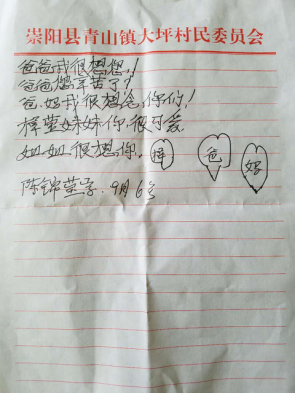 崇阳县青山镇大坪村民委员会
爸爸我很想您!
爸爸您辛苦了!
爸.妈我很想念你们!
梓萱妹妹你很可爱
如如很想你. 梓 爸 妈
陈锦萱 9月6号